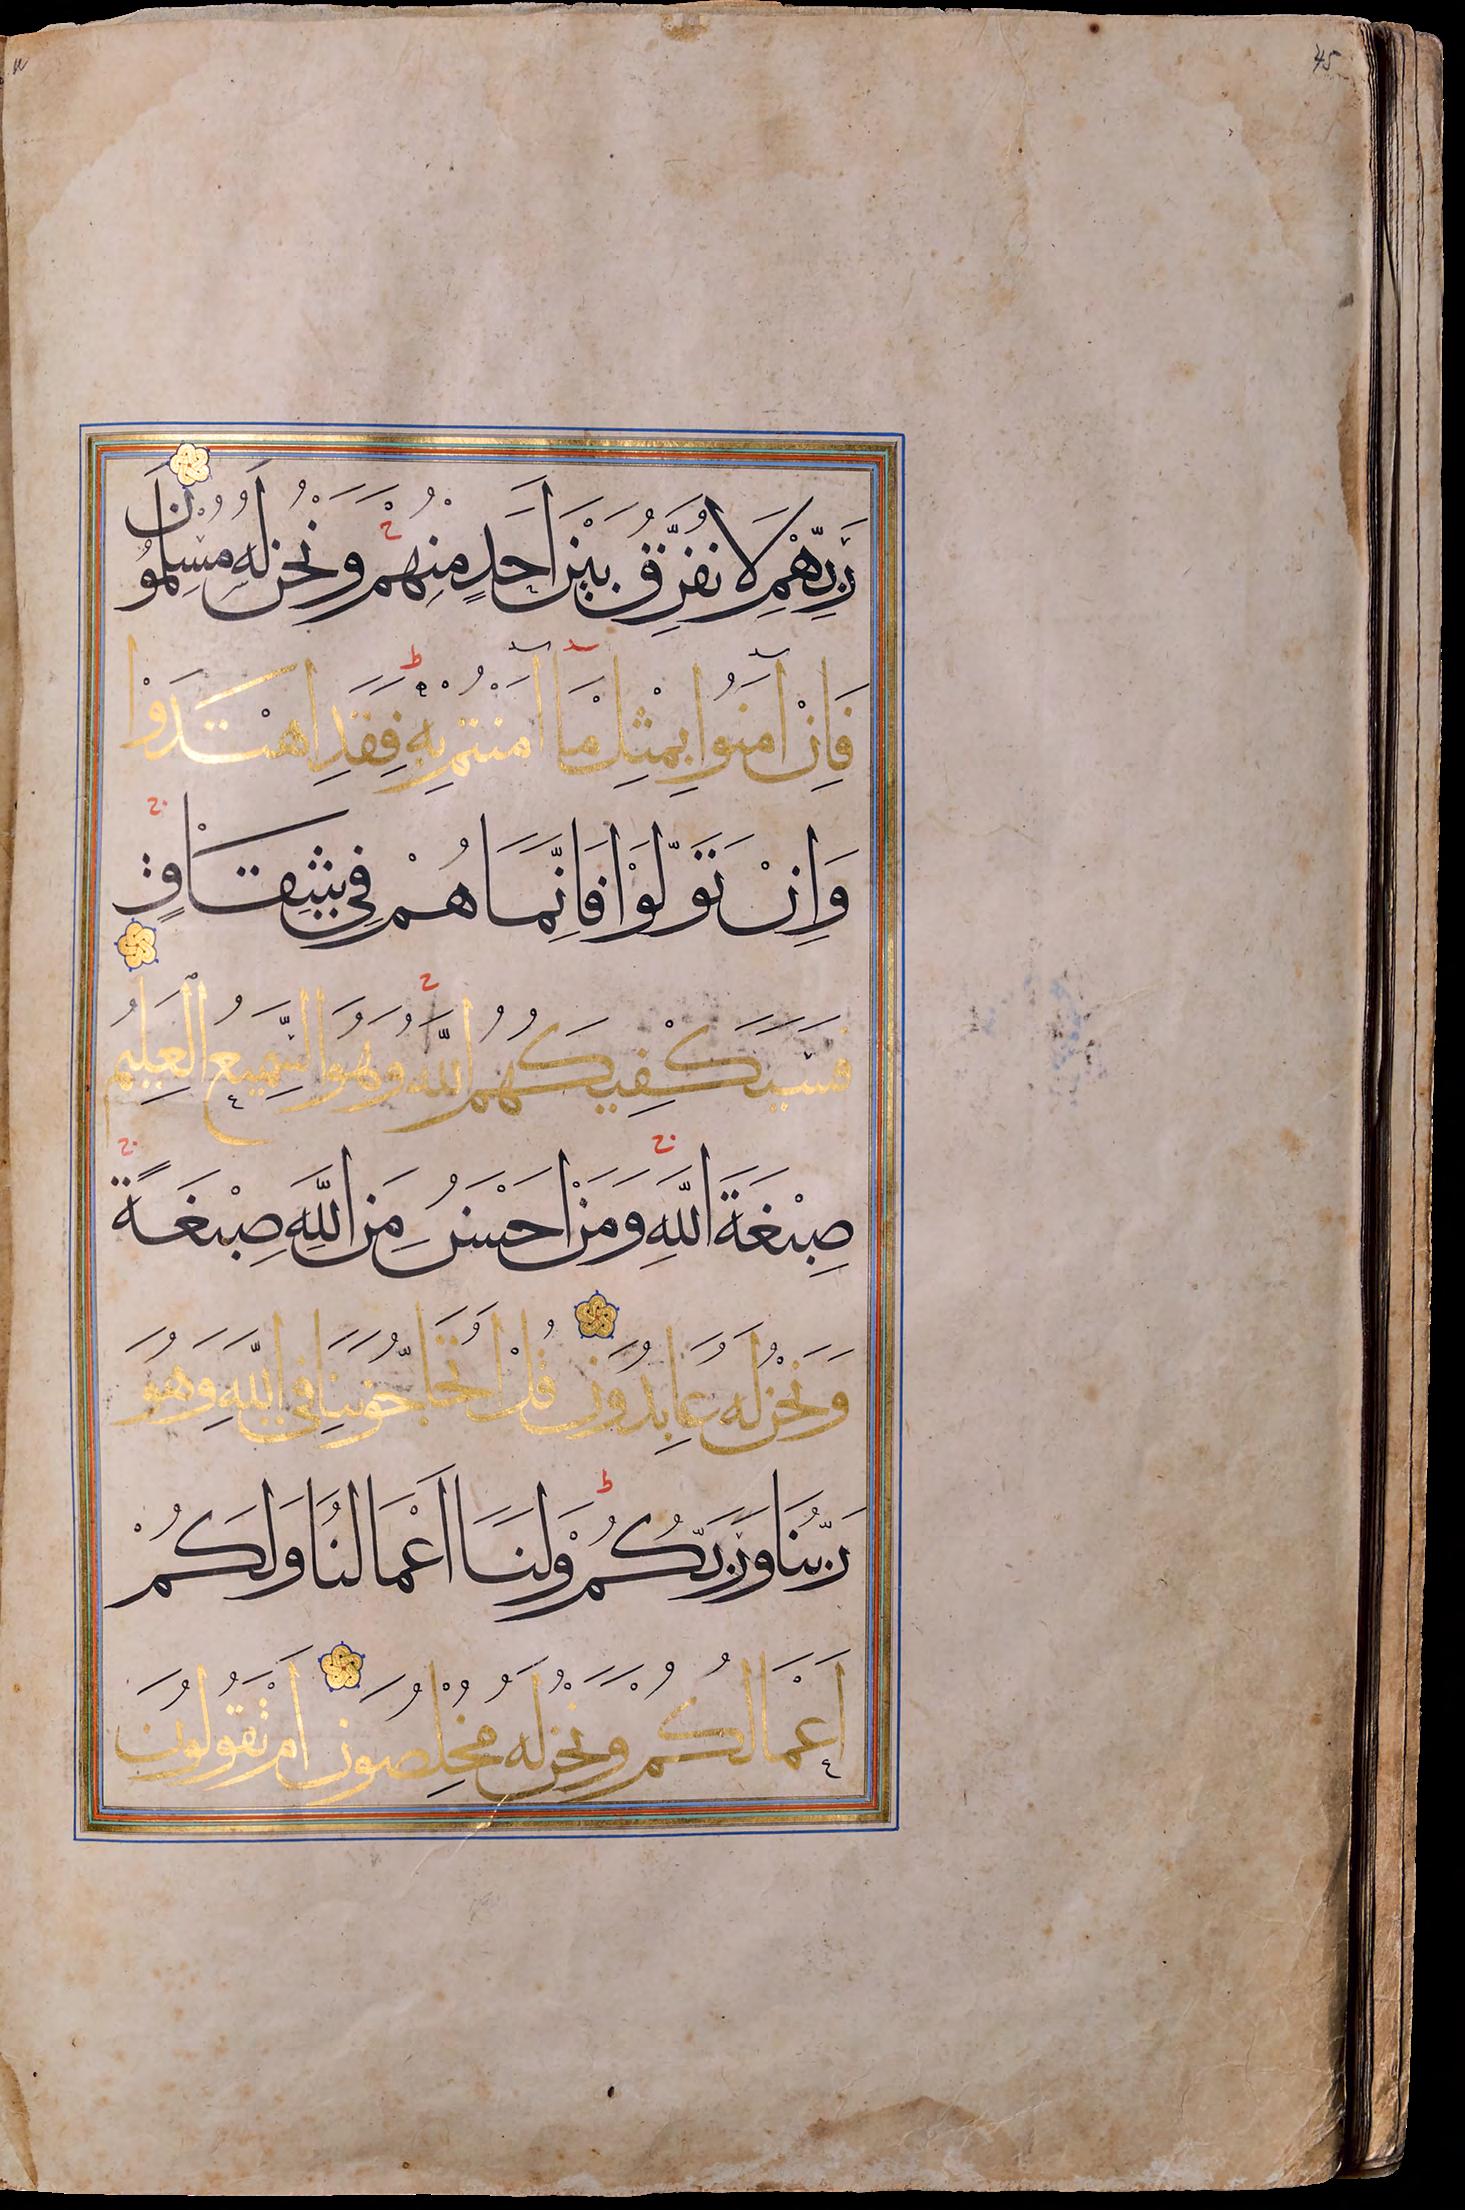 45
رَبِّهِمْ لَا نُفَرِّقُ بَيْنَ اَحَدٍ مِنْهُمْ وَنَحْنُ لَهُ مُسْلِمُونَ
فَاِنْ اٰمَنُوا بِمِثْلِ مَٓا اٰمَنْتُمْ بِهٖ فَقَدِ اهْتَدَوْا
وَاِنْ تَوَلَّوْا فَاِنَّمَا هُمْ فِي شِقَاقٍ
فَسَيَكْفِيكَهُمُ اللّٰهُ وَهُوَ السَّمِيعُ الْعَلِيمُ
صِبْغَةَ اللّٰهِ وَمَنْ اَحْسَنُ مِنَ اللّٰهِ صِبْغَةً
وَنَحْنُ لَهُ عَابِدُونَ قُلْ اَتُحَاجُّونَنَا فِي اللّٰهِ وَهُوَ
رَبُّنَا وَرَبُّكُمْ وَلَنَٓا اَعْمَالُنَا وَلَكُمْ
اَعْمَالُكُمْ وَنَحْنُ لَهُ مُخْلِصُونَ اَمْ تَقُولُونَ